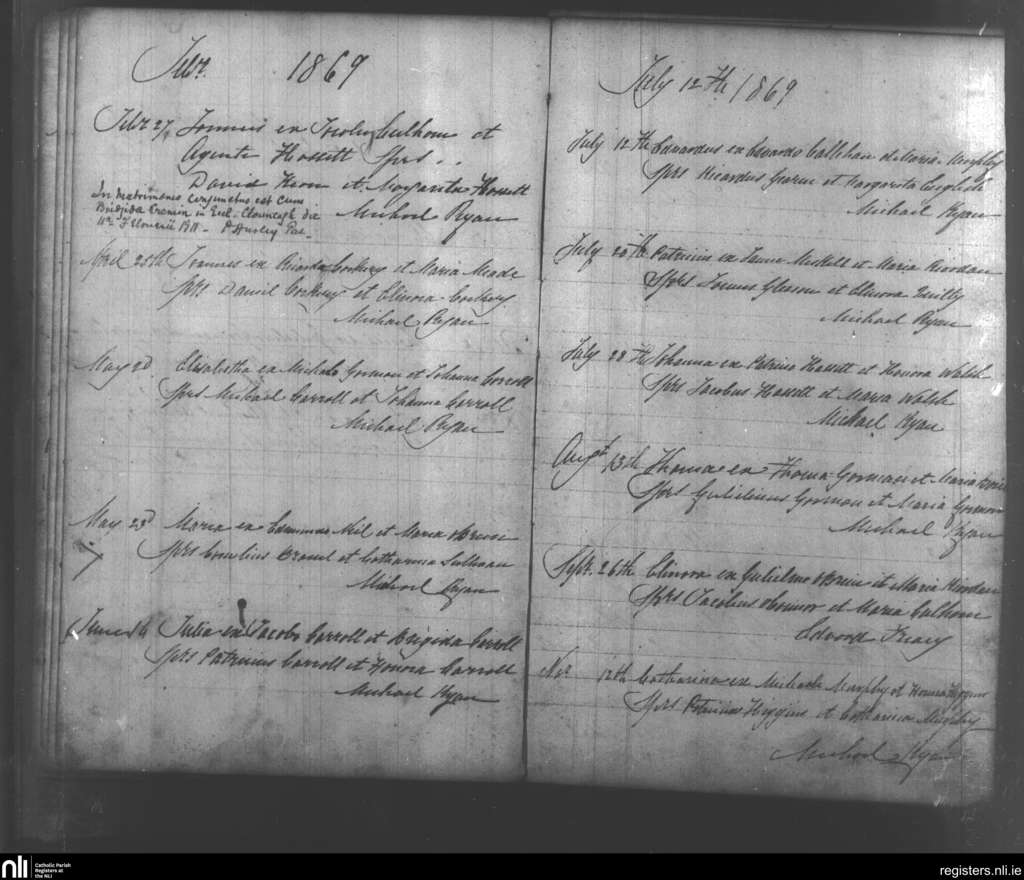 Febr. 1869
Febr 27 Joannis ex Culhane et
Agente Hassett Sprs..
David Kean et Margarita Hassett
Michael Ryan
In Matrimonio conjunctus est cum
Brigida Cronin in Eccl. die
1911 - P Pas-
April 25th Joannes ex Ricardo Corkery et Maria Meade
Sprs Daniel Corkery et Elinora Corkery
Michael Ryan
May 2d Elisabetha ex Michale Gorman et Johanna Carroll
Sprs Michael Carroll et Johanna Carroll
Michael Ryan
May 23d Maria ex Neil et Maria
Sprs Cornelius et Catharina Sullivan
Michael Ryan
June Julia ex Jacobo Carroll et Brigida Carroll
Sprs Patricius Carroll et Honora Carroll
Michael Ryan
July 12th 1869
July 12th Eduardus ex Eduardo Callihan et Maria Murphy
Sprs Ricardus et Margarita English
Michael Ryan
July 20th Patricius ex et Maria Riordan
Sprs Joannes Gleason et Elinora Quilty
Michael Ryan
July 28th Johanna ex Patricio Hassett et Honora Walsh
Sprs Jacobus Hassett et Maria Walsh
Michael Ryan
Augst 13th Thomas ex Thoma Gorman et Maria
Sprs Gulielmus Gorman et Maria Gorman
Michael Ryan
Sept. 26th Elinora ex Gulielmo OBrien et Maria Riordan
Sprs Jacobus OConnor et Maria Culhane
Edvard Treacy
Nov. 12th Catharina ex Michale Murphy et Honora Higgins
Sprs Patricius Higgins et Catharina Murphy
Michael Ryan
nli
Catholic Parish
Registers at
the NLI
registers.nli.ie